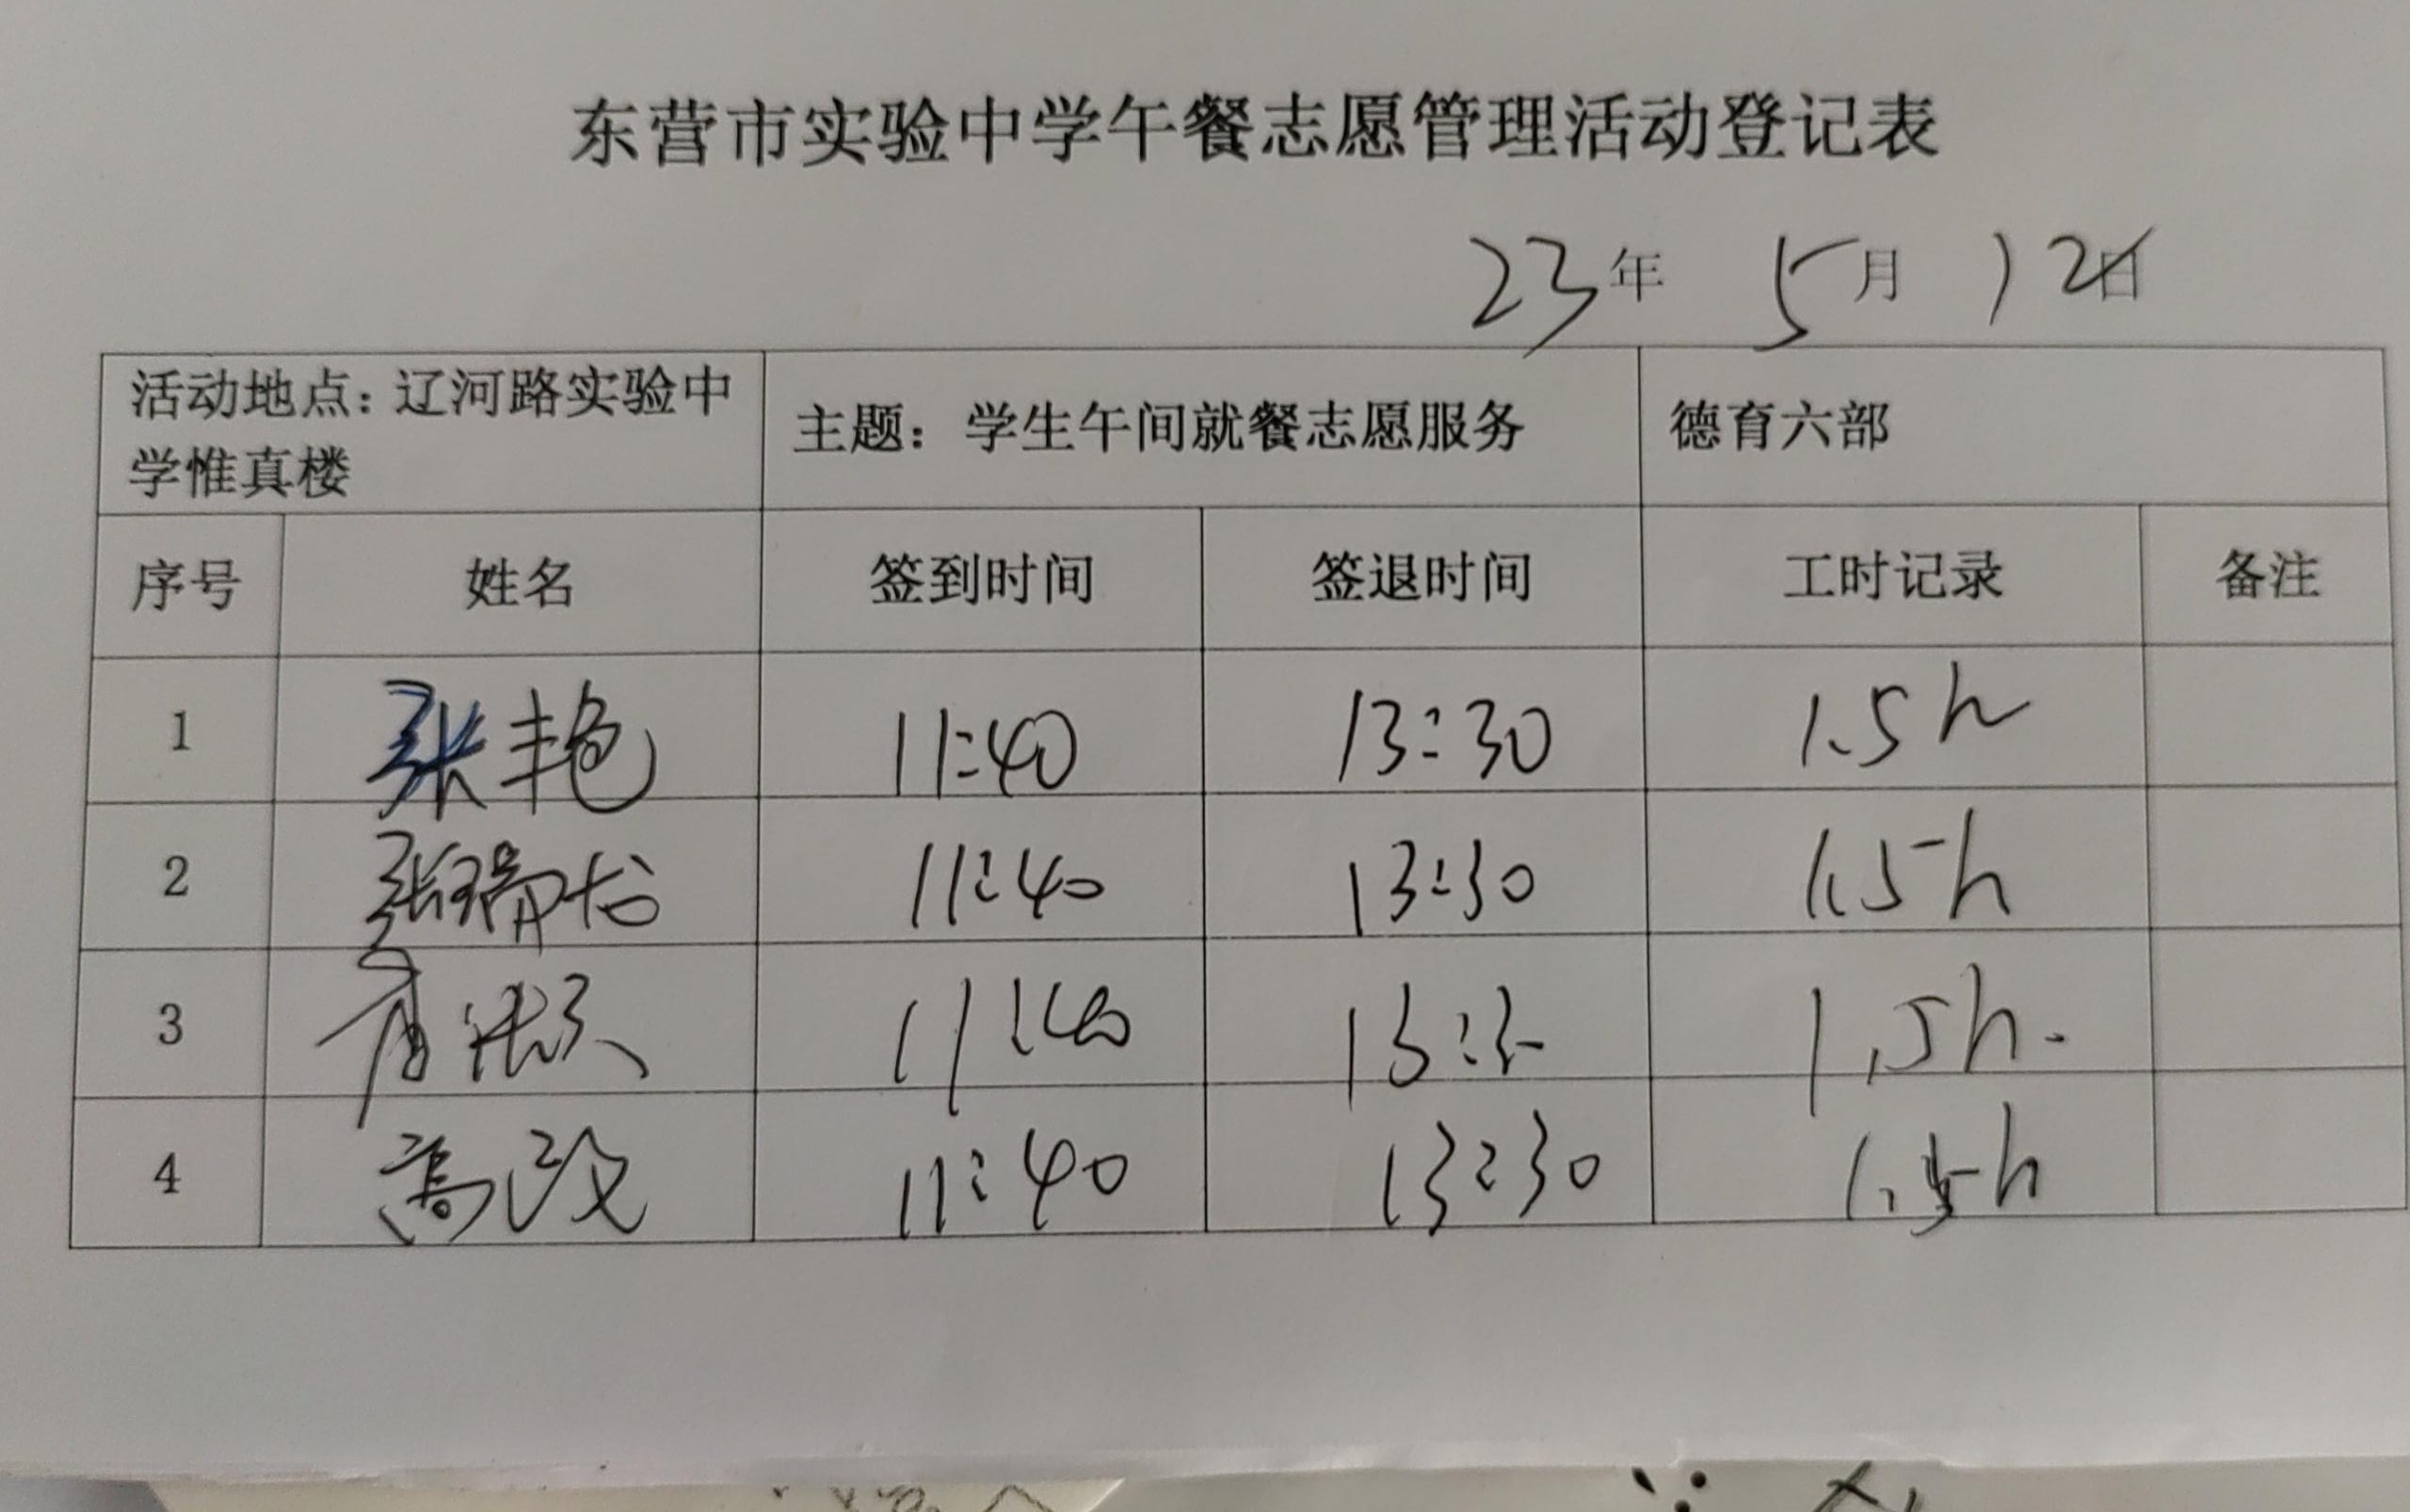 东营市实验中学午餐志愿管理活动登记表
23年 5月 12日
活动地点：辽河路实验中
学惟真楼
主题：学生午间就餐志愿服务
德育六部
序号 姓名 签到时间 签退时间 工时记录 备注
1 张艳 11:40 13:30 1.5h
2 张瑞 11:40 13:30 1.5h
3 11:40 13:30 1.5h.
4 高 11:40 13:30 1.5h